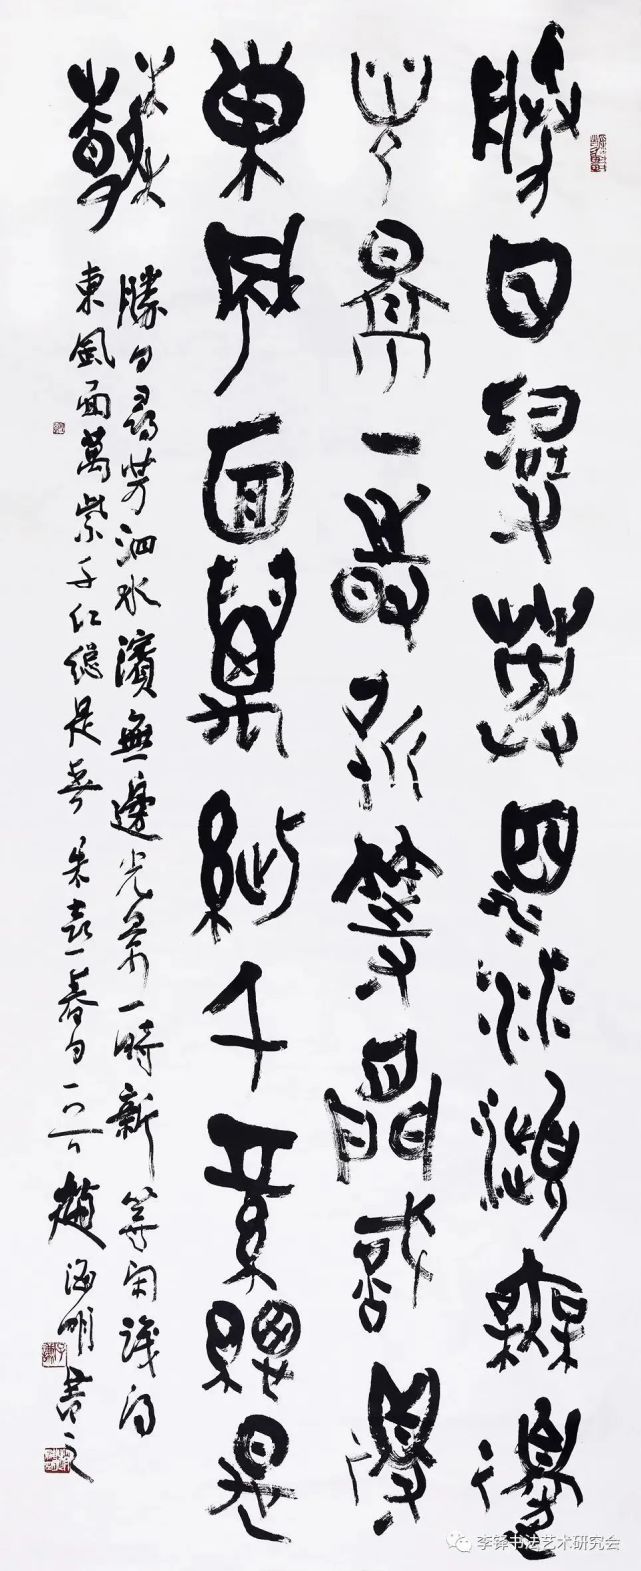 勝日尋芳泗水濱無邊
光景一時新等閒識得
東風面萬紫千紅總是
春
勝日尋芳泗水濱無邊光景一時新等閑識得
東風面萬紫千紅總是春 朱熹春日 趙海明書之
李铎书法艺术研究会